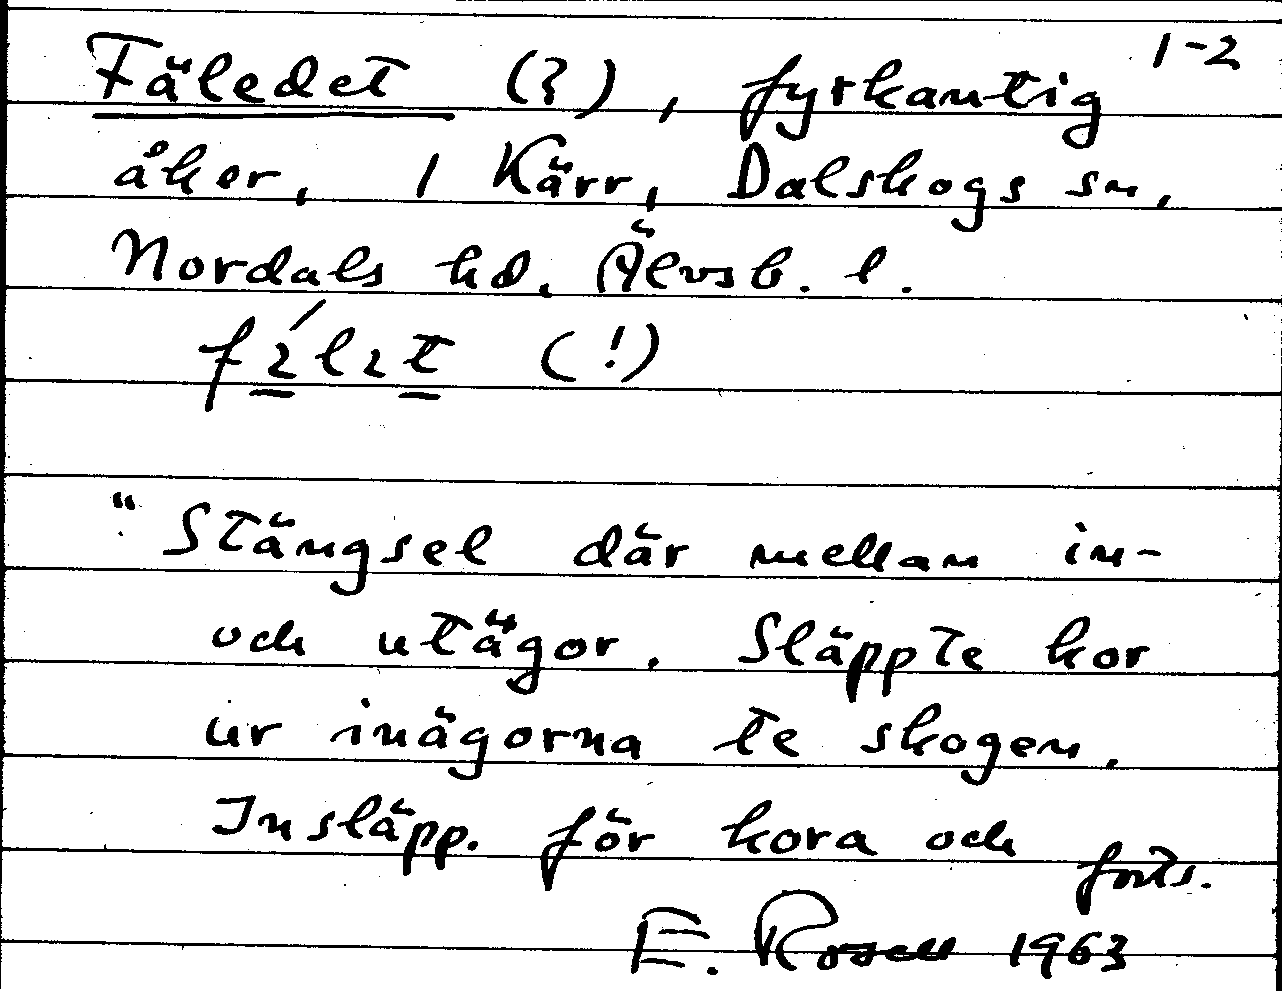 1-2
Fäledet (?), fyrkantig
åker, 1 Kärr, Dalskogs sn,
Nordals hd. Älvsb. l.
(!)
"Stängsel där mellan in-
och utägor. Släppte kor
ur inägorna te skogen.
Insläpp. för kora och
forts.
E. Rosell 1963